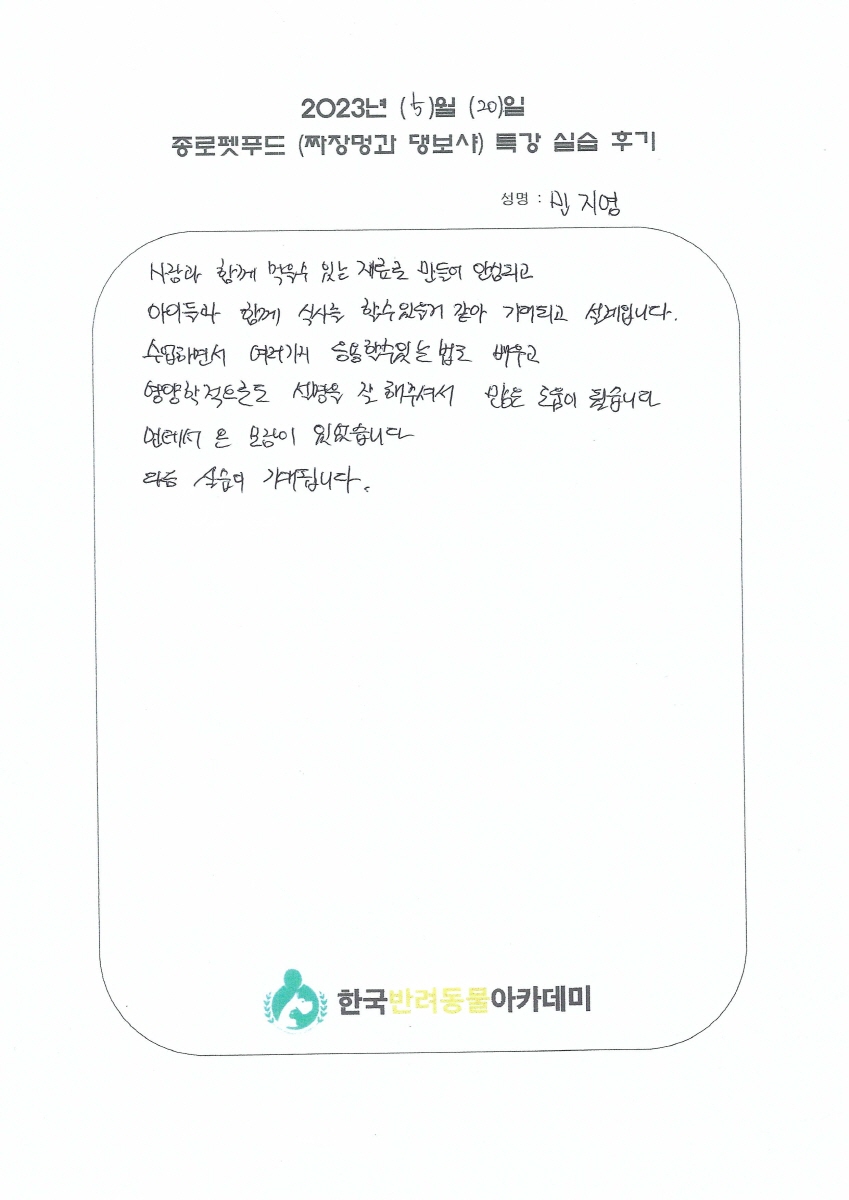 2023년 (5)월 (20)일
종로펫푸드 (짜장멍과 댕보샤) 특강 실습 후기
성명 : 민지영
사람과 함께 먹을수 있는 재료로 만들어 안심되고
아이들과 함께 식사를 할수있을거 같아 기대되고 설레입니다.
수업하면서 여러가지 응용할수있는 법도 배우고
영양학적으로도 설명을 잘 해주셔서 많은 도움이 됬습니다
먼데서 온 보람이 있었습니다
다음 실습이 기대됩니다.
한국반려동물아카데미